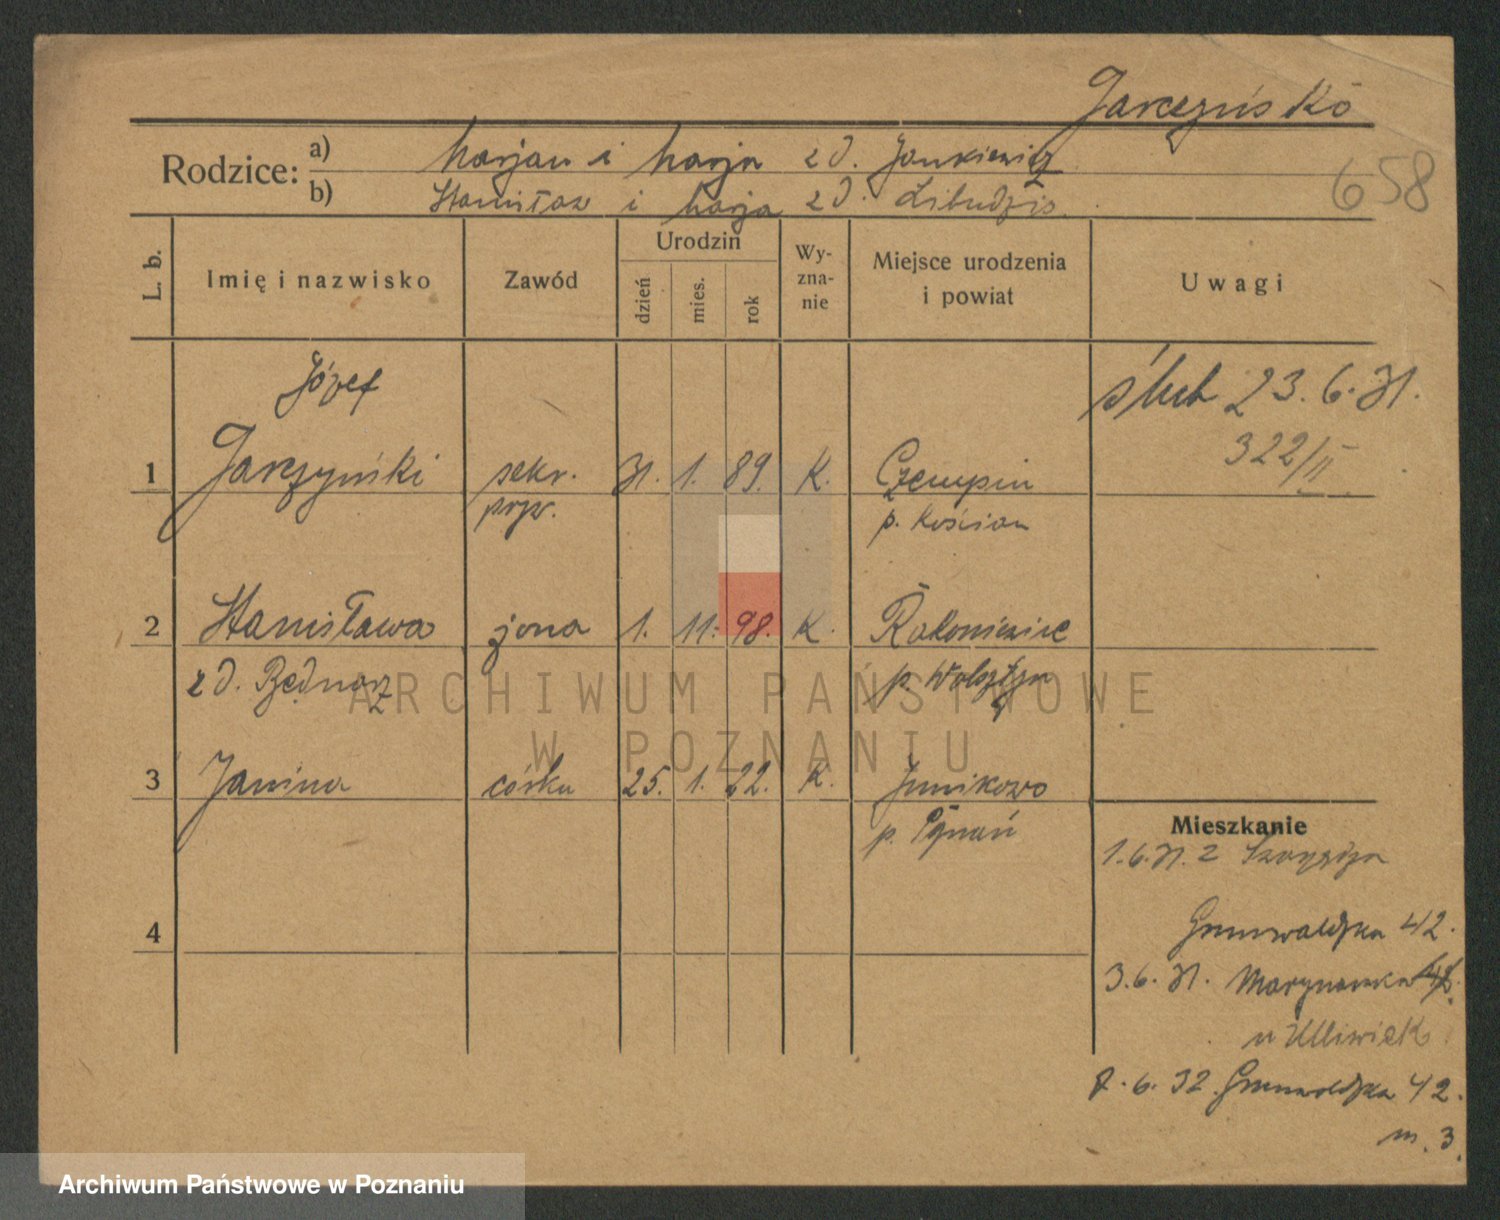 Jarczyńsko
658
Rodzice: a) Marjan i Marja z d. Jankiewicz
b) Stanisław i Marja z d. Libudzis
L. b. Imię i nazwisko Zawód Urodzin dzień mies. rok Wyznanie Miejsce urodzenia i powiat Uwagi
Józef ślub 23.6.31.
1 Jarczyński sekr. 31. 1. 89. K. Czempiń 322/II
pryw. p. Kościan
2 Stanisława żona 1. 11. 98. K. Rakoniewice
z d. Bednarz p. Wolsztyn
3 Janina córka 25. 1. 22. K. Junikowo
p. Pznań
4
Mieszkanie
1.6.31. z
Grunwaldzka 42.
3.6.31. Marynarska
u
7.6.32. Grunwaldzka 42.
m. 3.
ARCHIWUM PAŃSTWOWE
W POZNANIU
Archiwum Państwowe w Poznaniu